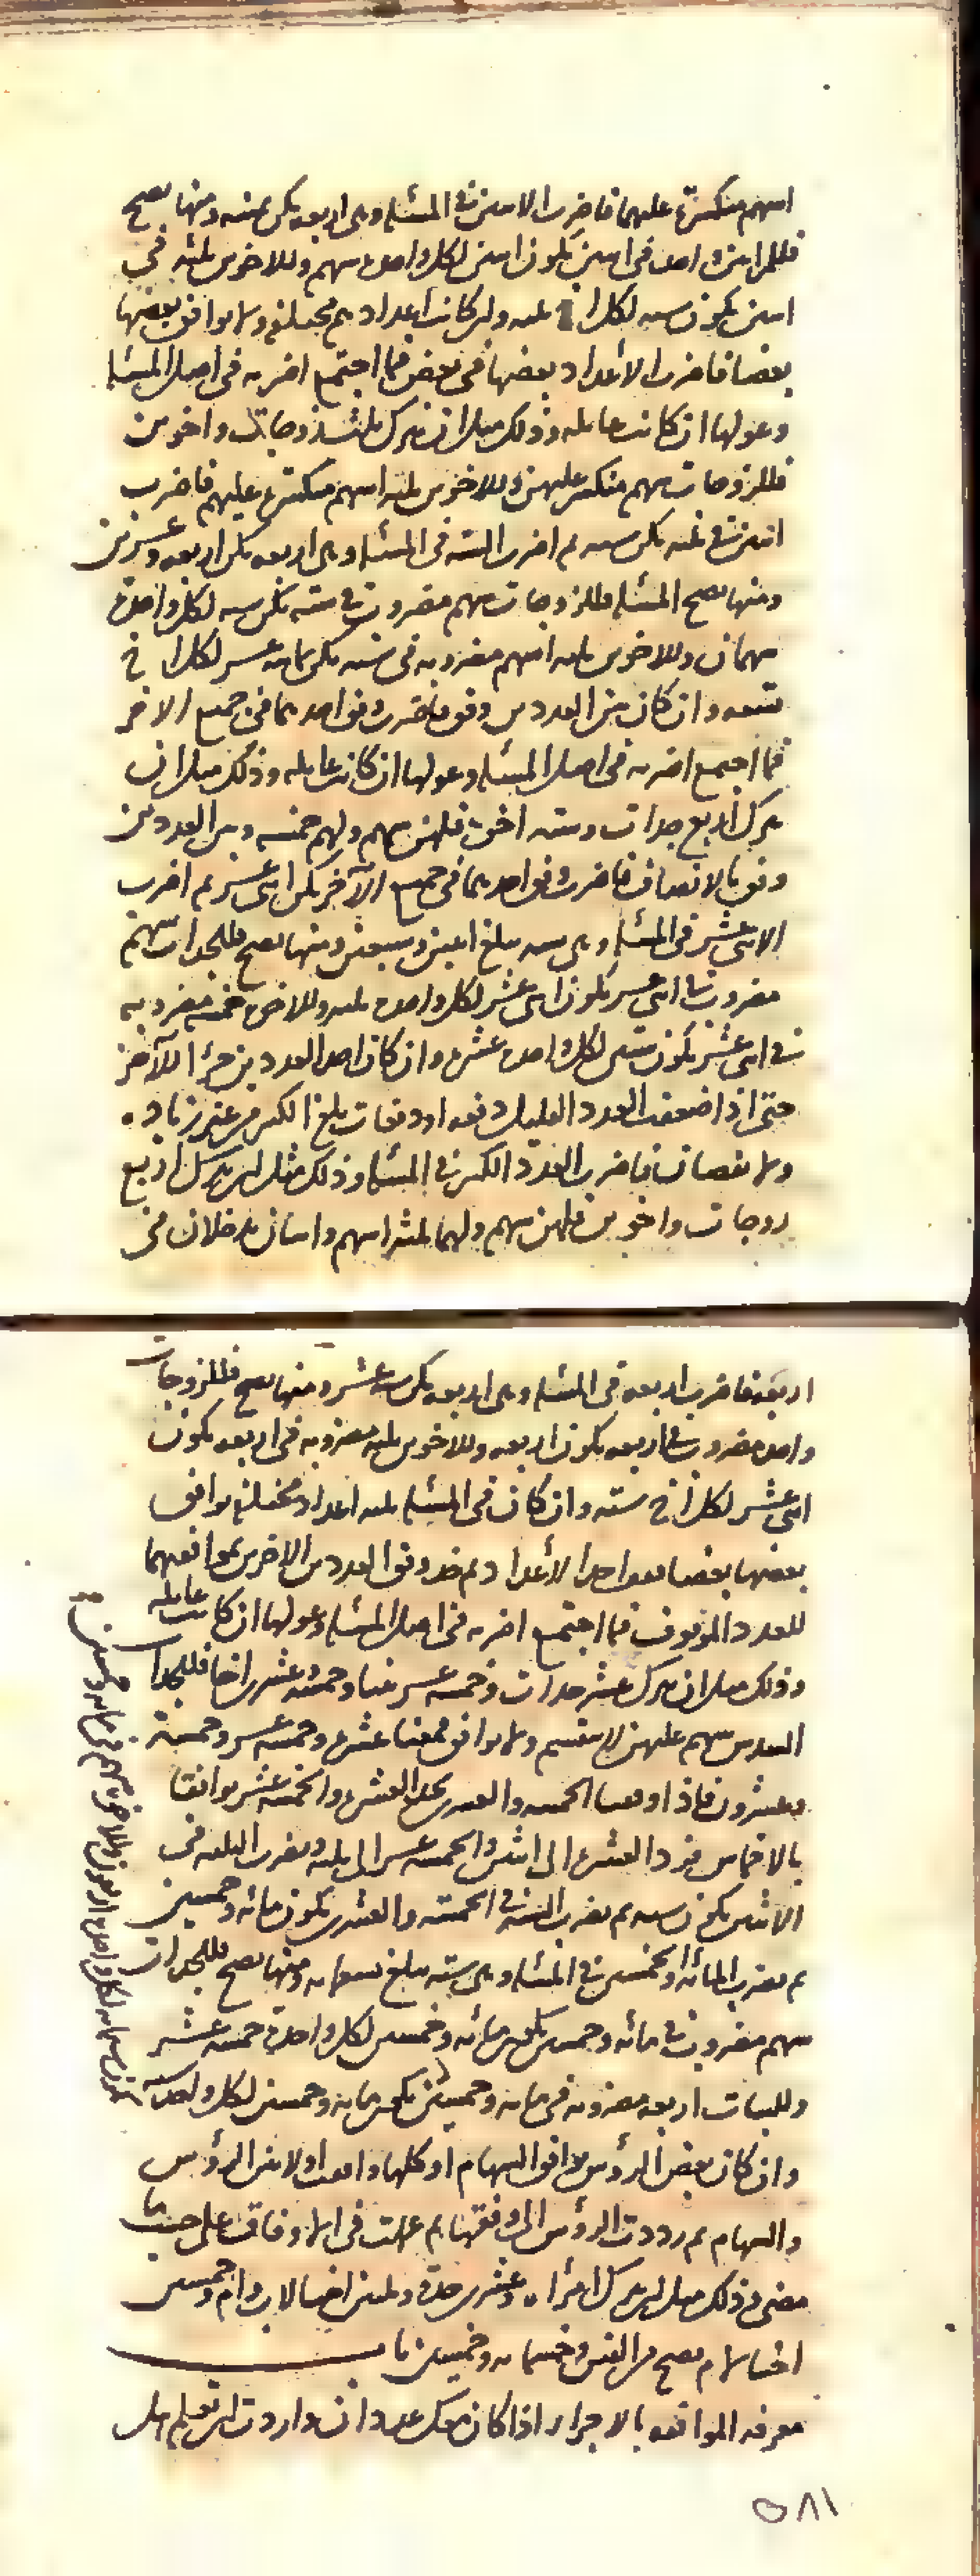 اسهم منكسرة عليهما فاضرب الاثنين في المسئلة وهي اربعة يكن ثمنيه ومنها تصح
فللمراتين واحد في اثنين يكون اثنين لكل واحدة سهم وللاخوين ثلثة في
اثنين يكون ستة لكل اخ ثلثه وان كانت اعدادهم مختلفة ولا يوافق بعضها
بعضا فاضرب الأعداد بعضها في بعض فما اجتمع اضربه في اصل المسئلة
وعولها ان كانت عايله وذلك مثل ان يترك ثلث زوجات واخوين
فللزوجات سهم منكسر عليهن وللاخوين ثلثه اسهم منكسرة عليهم فاضرب
اثنين في ثلثه يكن سته ثم اضرب الستة في المسئلة وهي اربعه يكن اربعه وعشرين
ومنها تصح المسئلة فللزوجات سهم مضروب في سته يكن سته لكل واحدة
سهمان وللاخوين ثلثه اسهم مضروبه في سته يكن ثمانيه عشر لكل اخ
تسعه وان كان بين العددين وفق فاضرب وفق احدهما في جميع الاخر
فما اجتمع اضربه في اصل المسئلة وعولها ان كانت عايله وذلك مثل ان
يترك اربع جدات وسته اخوة فلهن سهم ولهم خمسه وبين العددين
وفق بالانصاف فاضرب وفق احدهما في جميع الآخر يكن اثنى عشر ثم اضرب
الاثني عشر في المسئلة وهي سته يبلغ اثنين وسبعين ومنها تصح فللجدات سهم
مضروب في اثنى عشر يكون اثنى عشر لكل واحدة ثلثه وللاخوة خمسة مضروبه
في اثنى عشر يكون ستين لكل واحد عشرة وان كان احد العددين جزءا للآخر
حتى اذا ضعفت العدد القليل دفعه او دفعات بلغ الكثير من غير زيادة
ولا نقصان فاضرب العدد الكثير في المسئلة وذلك مثل ان يترك اربع
زوجات واخوين فلهن سهم ولهما ثلثة اسهم واثنان يدخلان في
اربعة فاضرب اربعه في المسئلة وهي اربعه يكن ستة عشر ومنها تصح فللزوجات
واحد مضروب في اربعه يكون اربعه وللاخوين ثلثه مضروبه في اربعه يكون
اثني عشر لكل اخ ستة وان كان في المسئلة ثلثه اعداد مختلفة يوافق
بعضها بعضا احد الأعداد ثم خذ وفق العددين الاخرين
للعدد الموقوف فما اجتمع اضربه في اصل المسئلة وعولها ان كانت عايله
وذلك مثل ان يترك عشر جدات وخمسه عشر بنتا وخمسة وعشرين اخا فللجدات
السدس سهم عليهن لا ينقسم ولا يوافق فمعنا عشرة وخمسه عشر وخمسة
وعشرون فاذا اوقفنا الخمسه والعشرين العشرة والخمسة عشر يوافقا
بالاخماس فرد العشرة الى اثنين والخمسه عشر الى ثلثه وتضرب الثلثه في
الاثنين يكون سته ثم تضرب الستة في الخمسة والعشرين يكون مائه وخمسين
ثم تضرب المائه والخمسين في المسئلة وهي ستة يبلغ تسعمايه ومنها تصح فللجدات
سهم مضروب في مائه وخمسين يكون مائه وخمسين لكل واحدة خمسه عشر
وللبنات اربعه مضروبه في مايه وخمسين لكل واحدة
وان كان بعض الرؤس يوافق السهام او كلها اولا بين الرؤس
والسهام ثم رددت الرؤس الى وفقها ثم عملت في الاوفاق على حسب ما
مضى وذلك مثل ان يترك امرأه وعشرين جدة اختا لاب وام وخمسين
اختا لام تصح من الفين وخمسمايه وخمسين باب
معرفة الموافقة بالاجزاء اذا كان معك عددان واردت ان تعلم هل
٥٨١